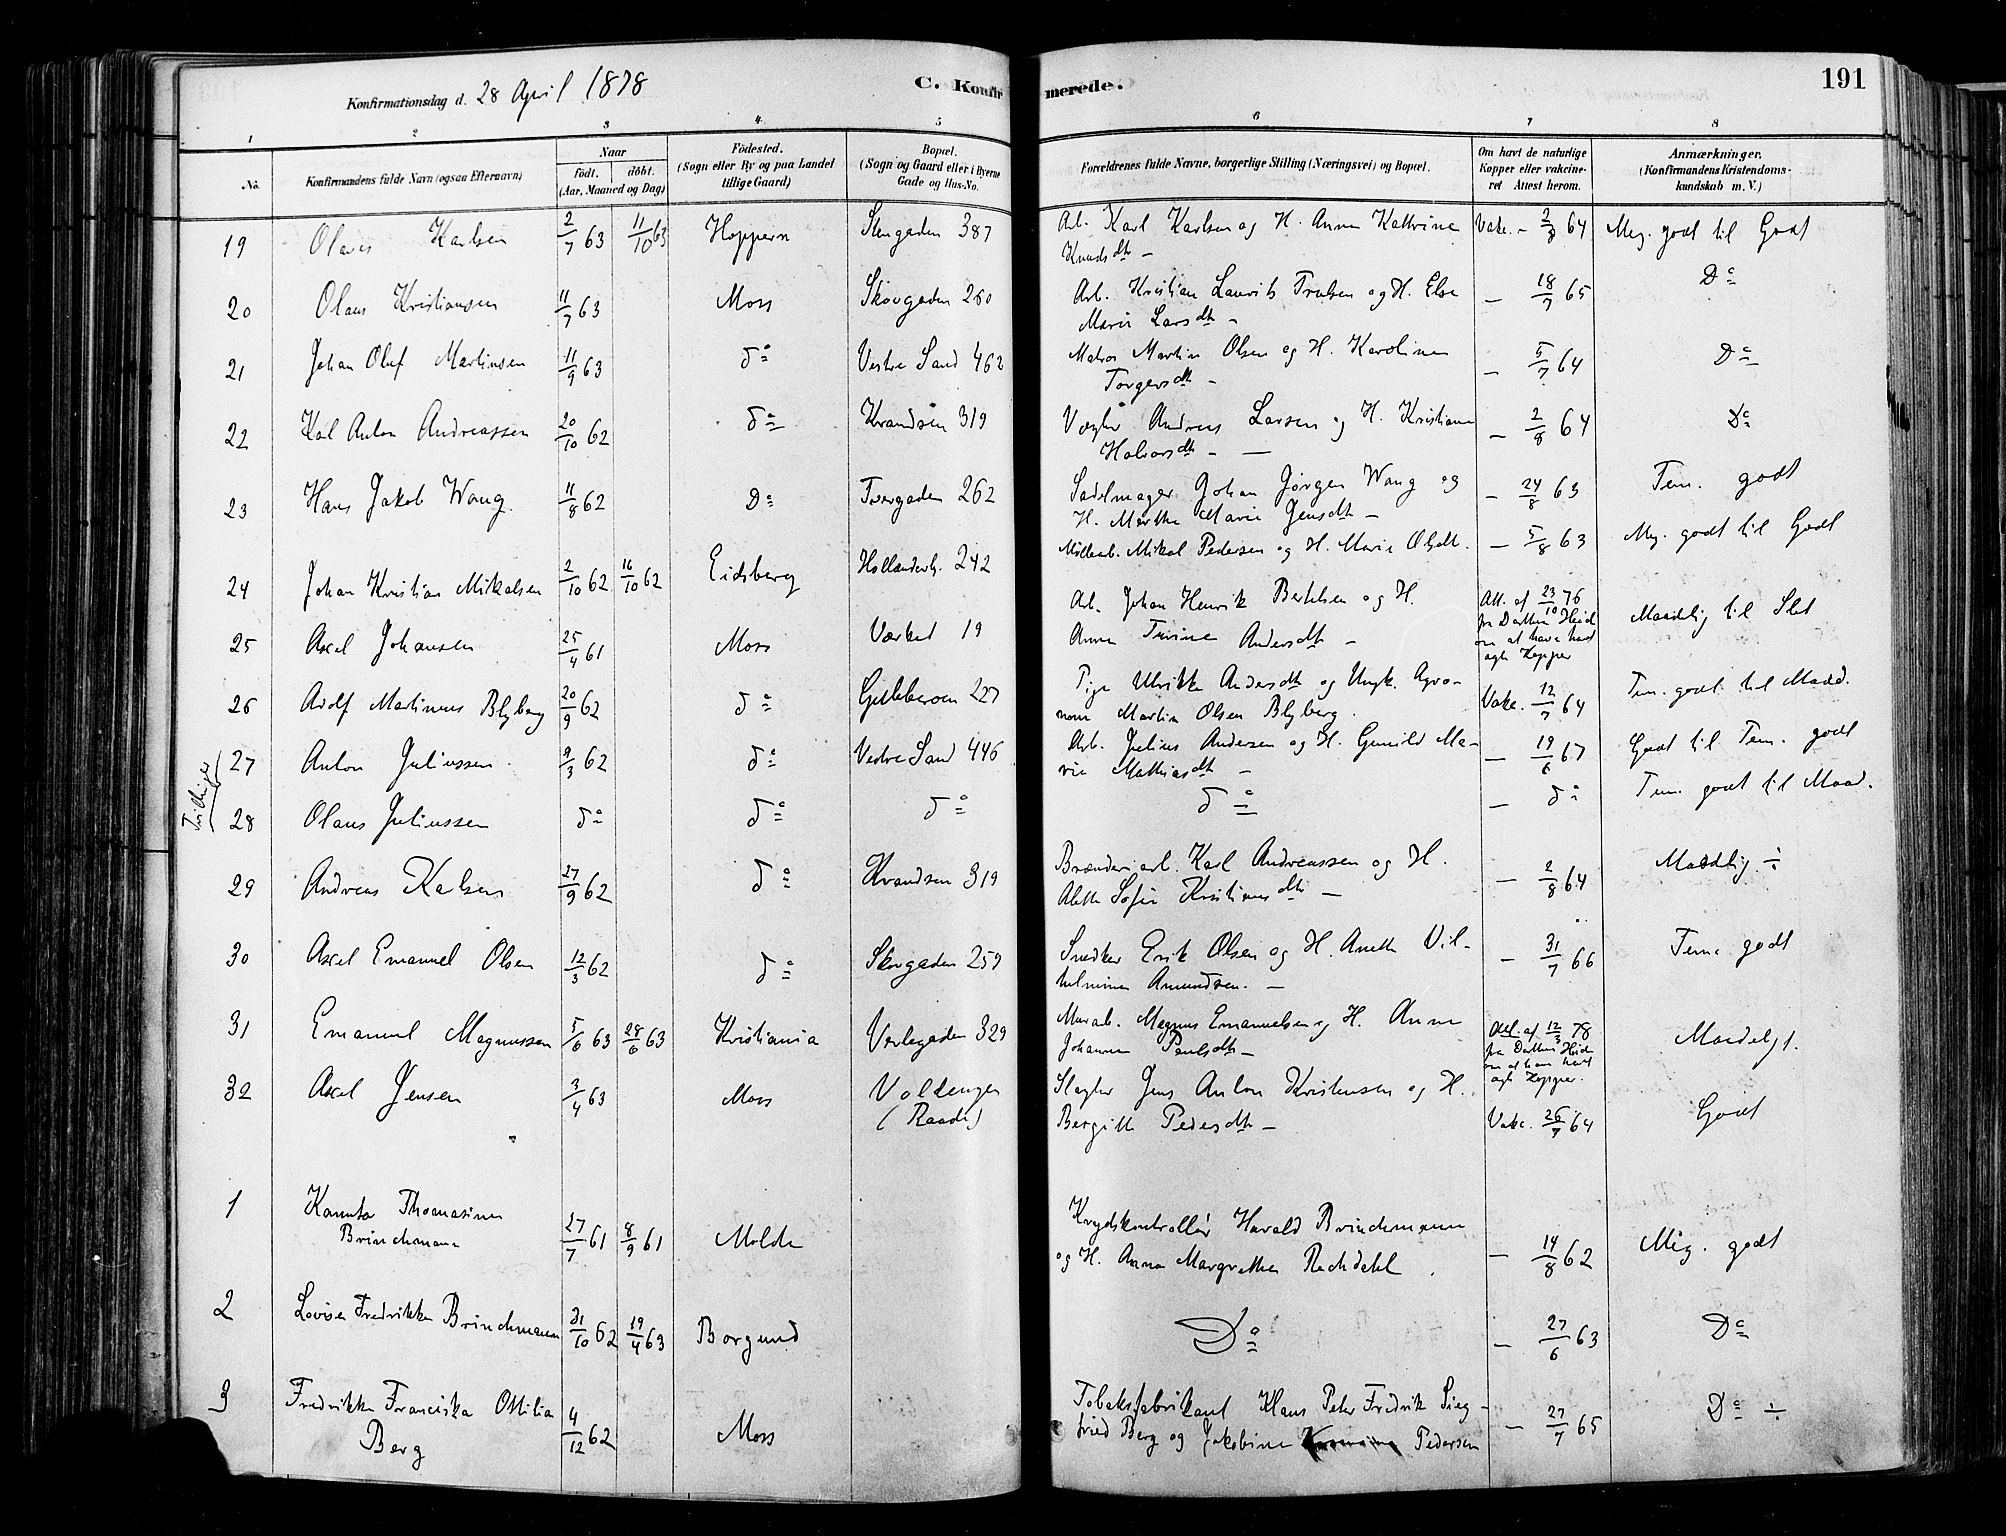 Konfirmationsdag d. 28 April 1878
C. Konfirmerede.
191
1 2 3 4 5 6 7 8
No.
Konfirmandens fulde Navn (ogsaa Efternavn)
Naar
födt. döbt.
(Aar, Maaned og Dag)
Födested.
(Sogn eller By og paa Landet
tillige Gaard)
Bopæl.
(Sogn og Gaard eller i Byerne
Gade og Hus-No.
Forældrenes fulde Navne, borgerlige Stilling (Næringsvei) og Bopæl.
Om havt de naturlige
Kopper eller vakcine-
ret Attest herom.
Anmærkninger.
(Konfirmandens Kristendoms-
kundskab m. V.)
19 Olaves Karlsen 2/7 63 11/10 63 Hoppern Stengaden 387 Arb. Karl Karlsen og H. Anne Kathrine Vakc. - 2/8 64 Meg. godt til Godt
Knudsdtr -
20 Olaus Kristiansen 11/7 63 Moss Skovgaden 260 Arb. Kristian Laurits Trulsen og H. Else — 18/7 65 Do
Marie Larsdtr -
21 Johan Oluf Martinsen 11/9 63 do Vestre Sand 462 Matros Martin Olsen og H. Karoline — 5/7 64 Do
Torgersdtr -
22 Karl Anton Andreassen 20/10 62 do Krandsen 319 Vægter Andreas Larsen og H. Kristiane — 2/8 64 Do
Halvorsdtr - —
23 Hans Jakob Wang 11/8 62 Do Tvergaden 262 Sadelmager Johan Jörgen Wang og — 24/8 63 Tem. godt
H. Marthe Marie Jensdtr -
24 Johan Kristian Mikalsen 2/10 62 16/10 62 Eidsberg Hollenderb. 242 Mölleab. Mikal Pedersen og H. Marie Olsdtr. — 5/8 63 Meg. godt til Godt
25 Axel Johansen 25/4 61 Moss Værket 19 Arb. Johan Henrik Bertelsen og H. Att. af 23/10 76 Maadelig til Slet
Anne Trine Andersdtr - fra Dokttor Heid
om at have havt
ægte Kopper
26 Adolf Martinius Blyberg 20/9 62 do Gudeberoen 227 Pige Ulrikke Andersdtr og Ungk. Agro- Vakc. 12/7 64 Tem. godt til Maad.
nom Martin Olsen Blyberg.
Tvillinger
27 Anton Juliussen 9/3 62 do Vestre Sand 446 Arb. Julius Andersen og H. Gunild Ma- — 19/6 67 Godt til Tem. godt
rie Mathiasdtr -
28 Olaus Juliussen do do do do — do Tem. godt til Maad.
29 Andreas Karlsen 27/9 62 do Krandsen 319 Brænderiarb. Karl Andreassen og H. — 2/8 64 Maadelig ÷
Alette Sofie Kristiansdtr —
30 Axel Emanuel Olsen 12/3 62 do Skovgaden 259 Snedker Erik Olsen og H. Anette Vil- - 31/7 66 Tem. godt
helmine Amundsen. —
31 Emanuel Magnussen 5/6 63 28/6 63 Kristiania Verlegaden 329 Murarb. Magnus Emanuelsen og H. Anne Att. af 12/3 78 Maadelgt.
Johanne Paulsdtr - fra Dokttor Heid
om at have havt
ægte Kopper.
32 Axel Jensen 3/4 63 Moss Voldengen Slagter Jens Anton Kristensen og H. Vakc. 26/7 64 Godt
(Raade) Bergitte Pedersdtr -
1 Kamita Thomasine 27/7 61 8/9 61 Molde Krydskontrollör Harald Brinchmann — 14/8 62 Meg. godt
Brinchmann og H. Anna Margrethe Rechdahl.
2 Lovise Fredrikke Brinchmann 31/10 62 19/4 63 Borgund Do — 27/6 63 Do
3 Fredrikke Franciska Ottilia 4/12 62 Moss Tobaksfabrikant Hans Peter Fredrik Sieg- — 27/7 65 Do ÷
Berg fried Berg og Jakobine Pedersen